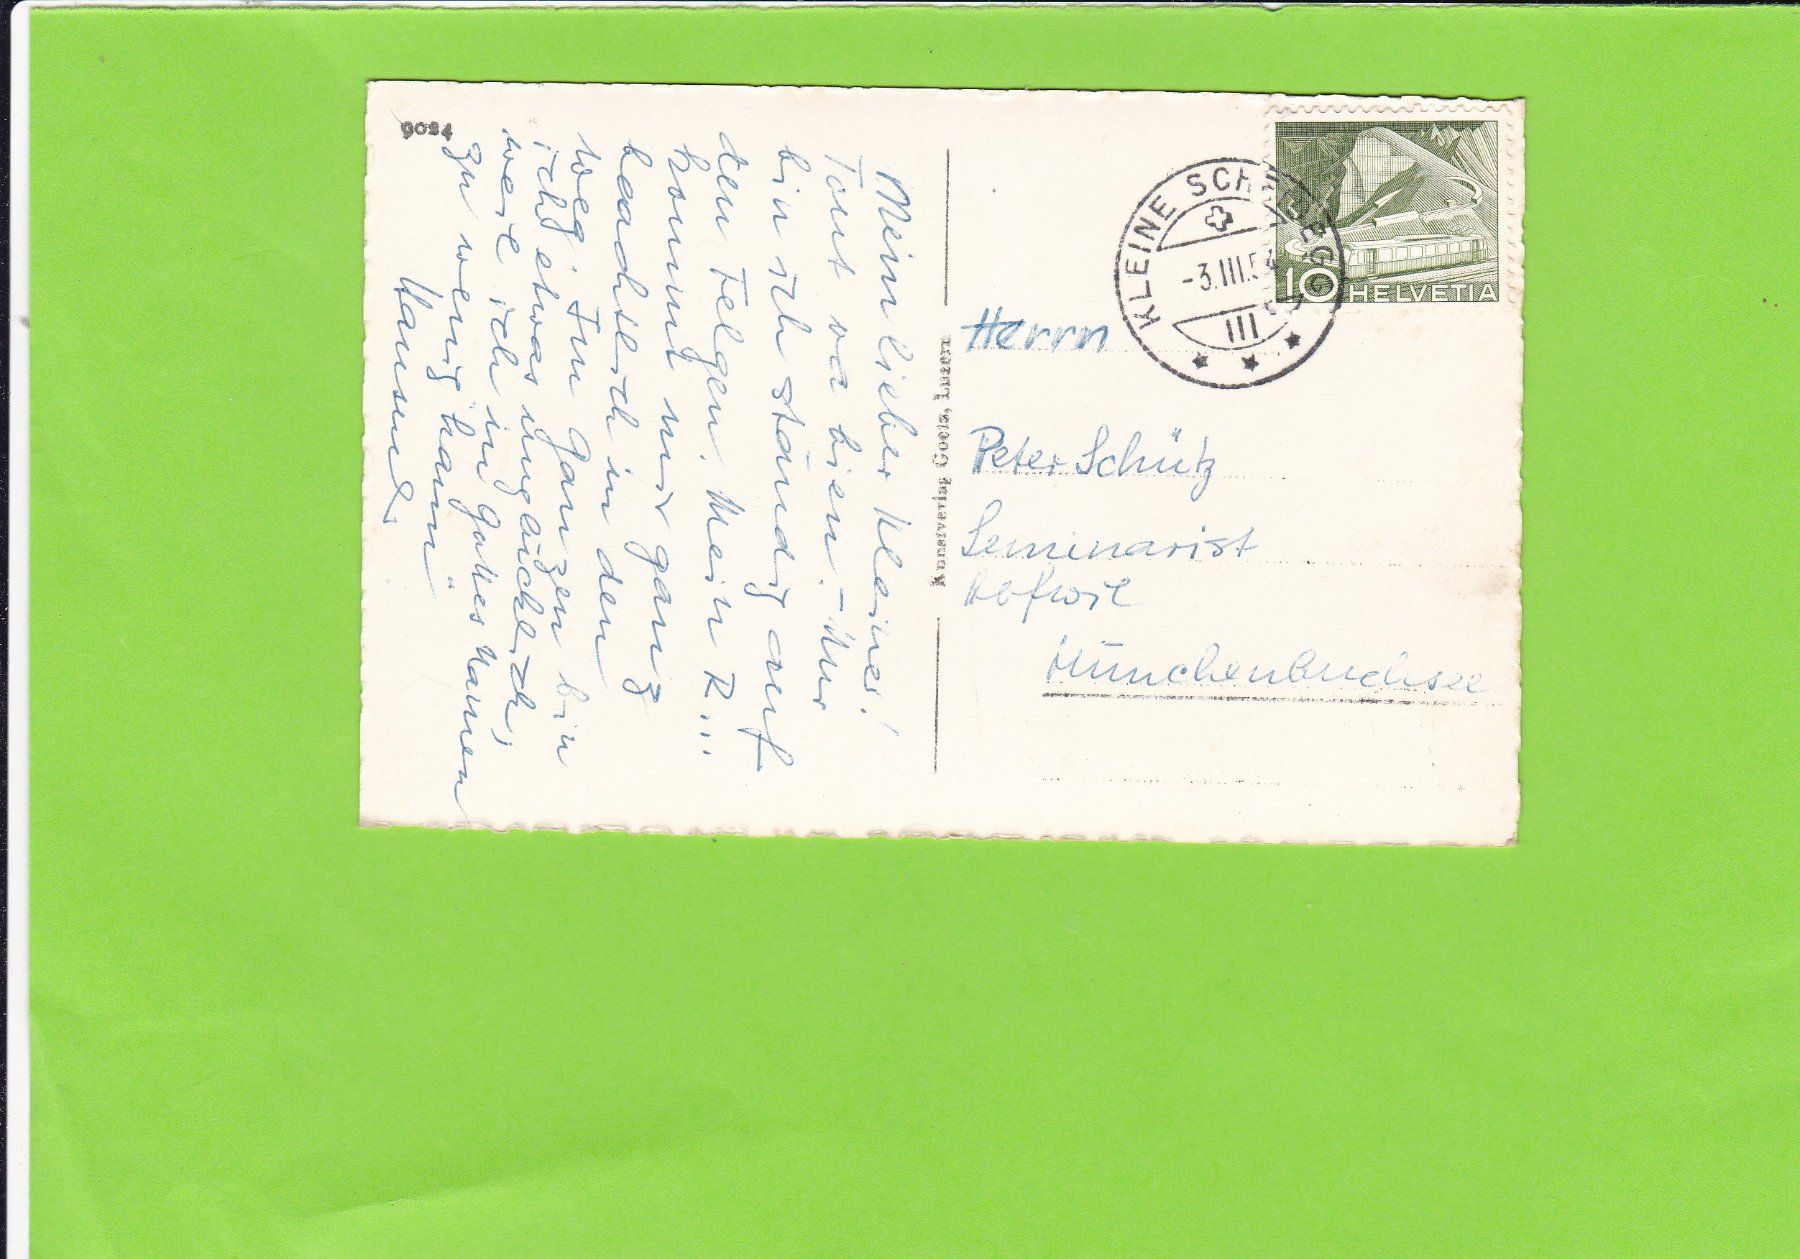 9034
Mein lieber Kleiner!
Tout va bien. – Nur
bin ich ständig auf
den Felgen. Mein R...
kommt mir ganz
in den
Weg! Im Ganzen bin
ich etwas unglücklich,
weil ich in Gottes Namen
zu wenig kann"
Hansueli
Kunstverlag Goetz, Luzern
KLEINE SCHEIDEGG
-3.III.54
III
10 HELVETIA
Herrn
Peter Schütz
Seminarist
Hofwil
Münchenbuchsee